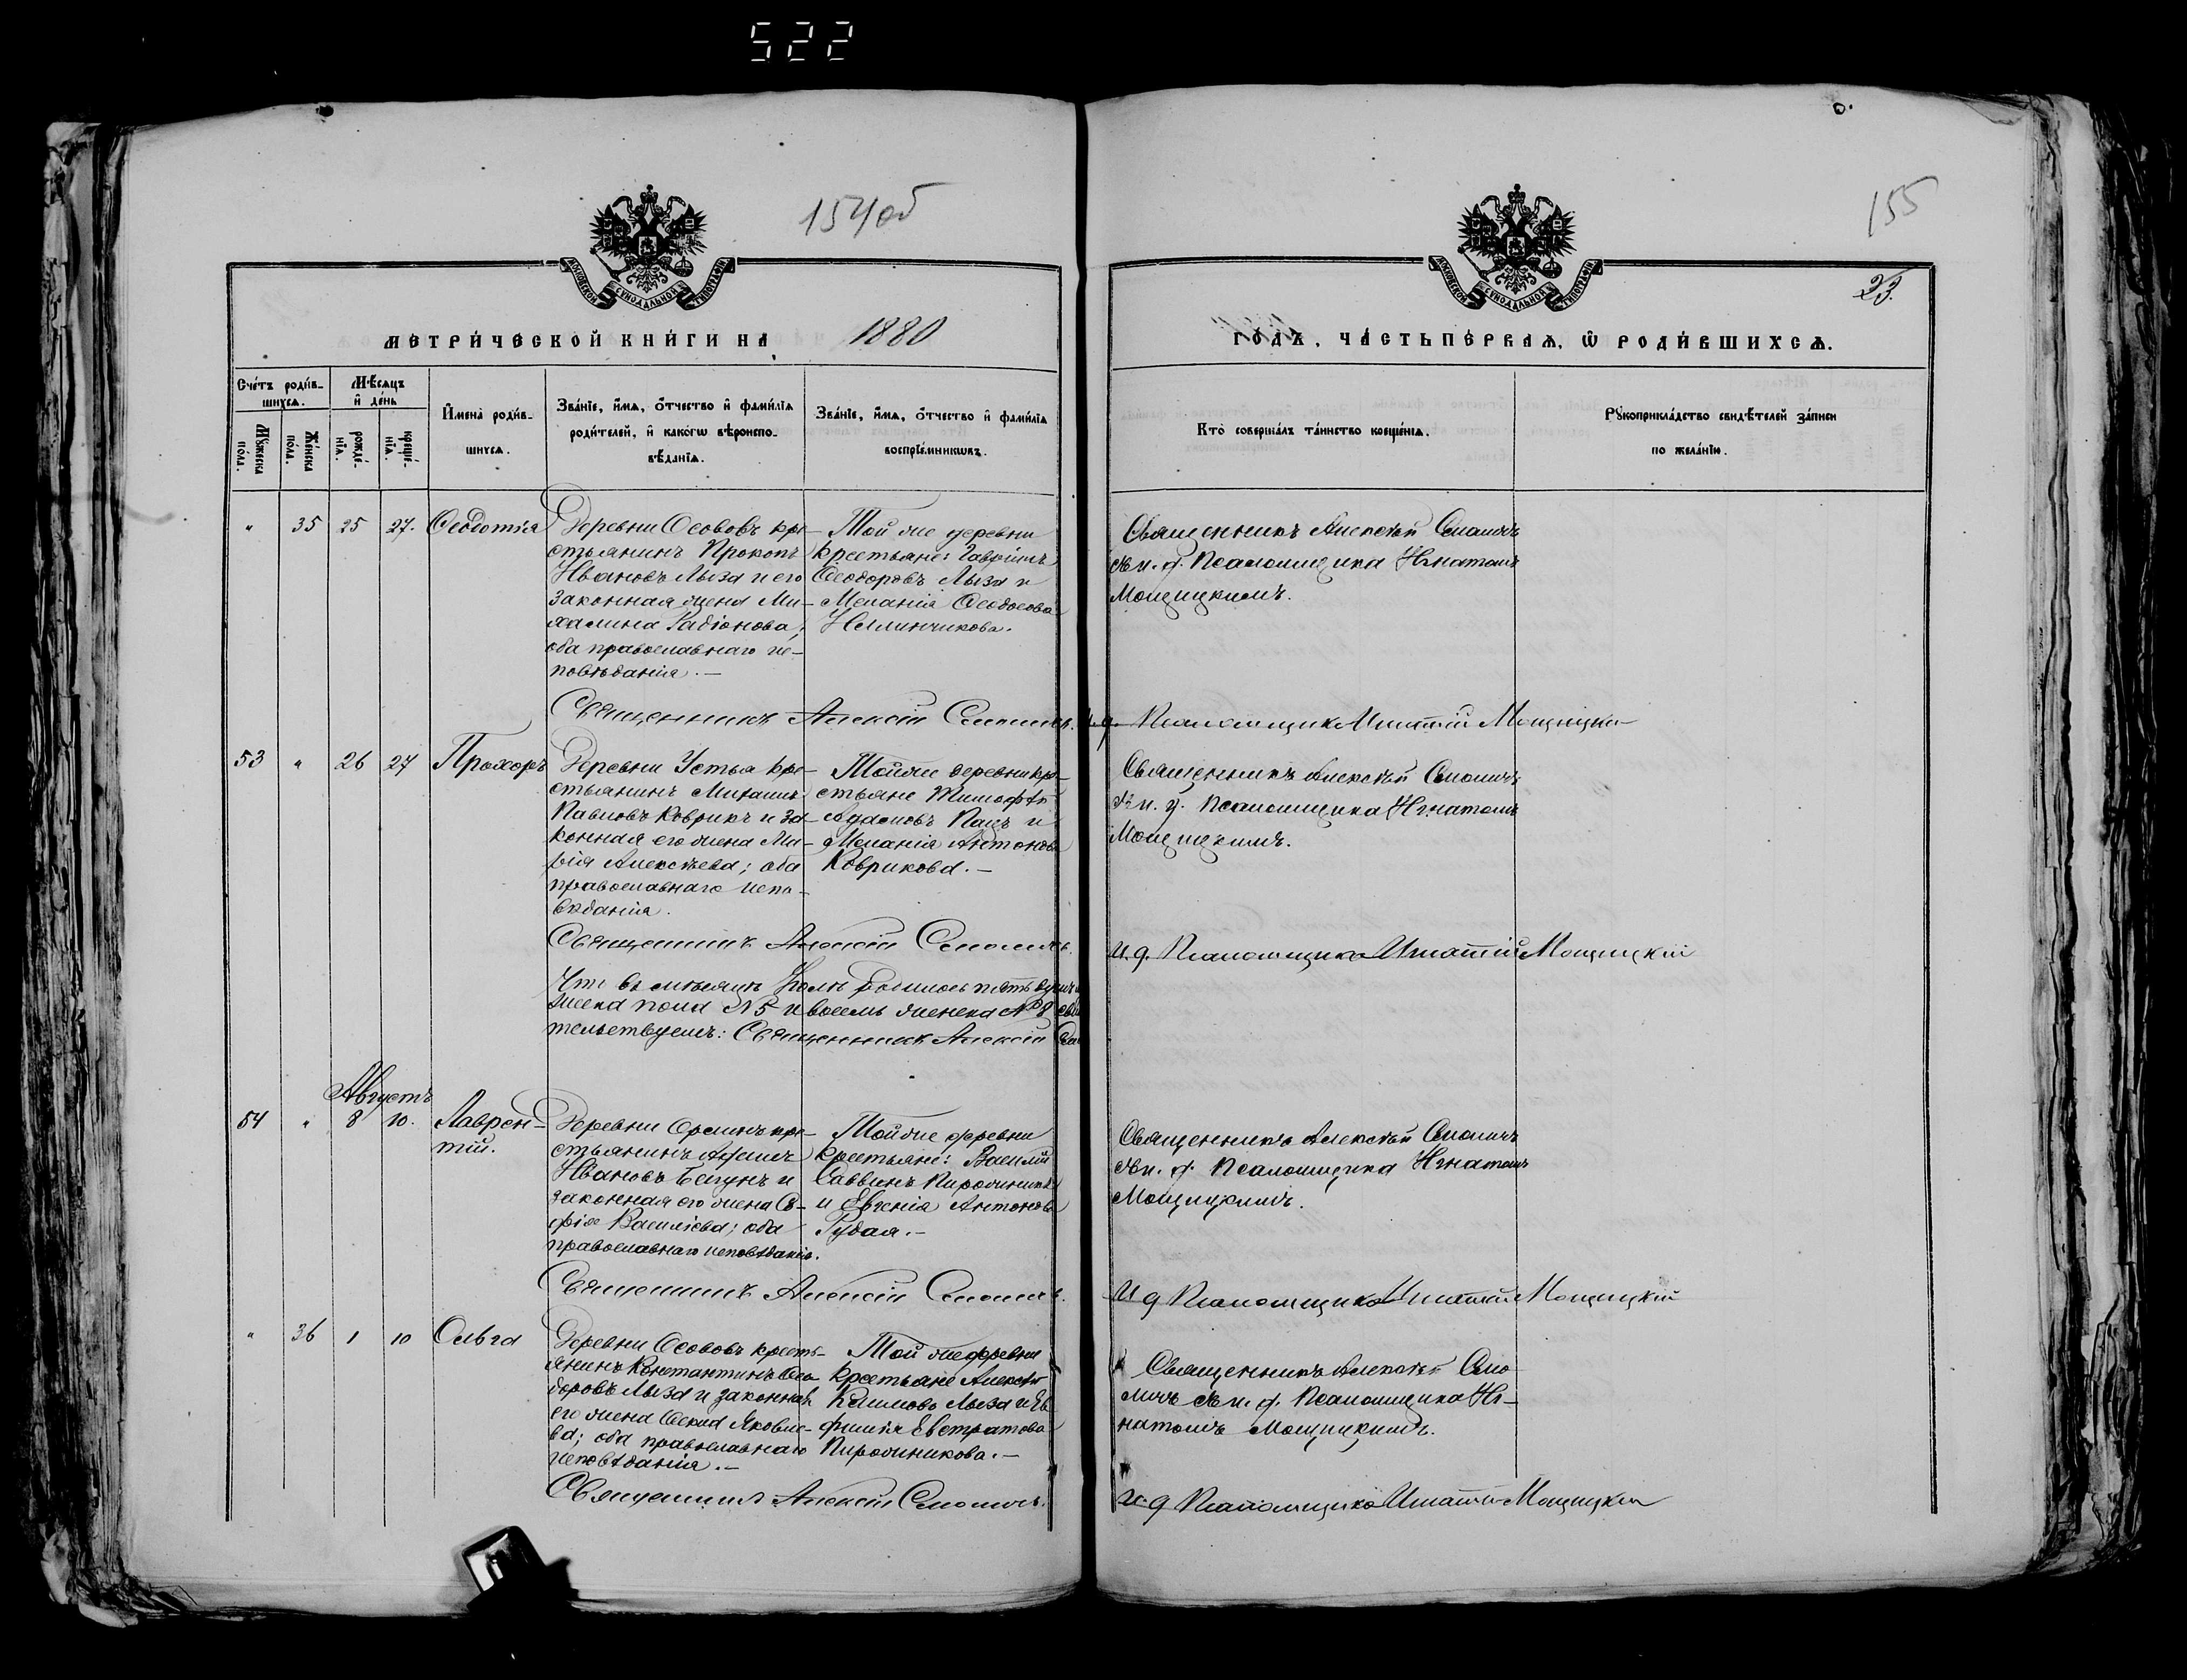 522
154об
155
23.
МОСКОВСКОЙ СѴНОДАЛЬНОЙ ТИПОГРАФІИ
МОСКОВСКОЙ СѴНОДАЛЬНОЙ ТИПОГРАФІИ
МЕТРИ́ЧЕСКОЙ КНИ́ГИ НА 1880
ГО́ДЪ, ЧА́СТЬ ПЕ́РВАѦ, Ѡ҆ РОДИ́ВШИХСѦ.
Сче́тъ роди́в-
шихсѧ.
Мѹ́жеска по́ла.
Же́нска по́ла.
Мѣ́сѧцъ и҆ де́нь
рожде́-
нїѧ.
креще́-
нїѧ.
И҆мена̀ роди́в-
шихсѧ.
Зва́нїе, и҆́мѧ, ѻ҆́тчество и҆ фами́лїѧ
роди́телей, и҆ како́гѡ вѣроиспо-
вѣ́данїѧ.
Зва́нїе, и҆́мѧ, ѻ҆́тчество и҆ фами́лїѧ
воспрїе́мникѡвъ.
Кто̀ соверша́лъ та́инство креще́нїѧ.
Рѹкоприкла́дство свидѣ́телей за́писи
по жела́нїю.
" 35 25 27. Ѳеодотія
Деревни Осововъ кре-
стьянинъ Прокопъ
Ивановъ Лыза и его
законная жена Ми-
халина Радіонова;
оба православнаго ис-
повѣданія. —
Той же деревни
крестьяне:
Ѳеодоровъ Лыза и
Меланія Ѳеодосова
Священникъ Алексѣй
и. д. Псаломщика Игнатомъ
Мощицкимъ.
Священникъ Алексій
и. д. Псаломщика Игнатій Мощицкій
53 " 26 27 Прохоръ
Деревни Устья кре-
стьянинъ Михаилъ
Павловъ Коврикъ и за-
конная его жена Ма-
рія Алексѣева; оба
православнаго испо-
вѣданія.
Той же деревни кре-
стьяне Тимофѣй
Адамовъ Пацъ и
Меланія Антонова
Коврикова. —
Священникъ Алексѣй
и. д. Псаломщика Игнатомъ
Мощицкимъ.
Священникъ Алексій
И. д. Псаломщика Игнатій Мощицкій
Что въ мѣсяцѣ Іюлѣ родилось пять душъ
жеска пола № 5 и восемь женска № 8
тельствуемъ: Священникъ Алексій
Августъ
54 " 8 10. Лаврен-
тій.
кре-
стьянинъ
Ивановъ Бегунъ и
законная его жена Со-
фія Василіева; оба
православнаго исповѣданія.
Той же деревни
крестьяне: Василій
Саввинъ Пирожникъ
и Евгенія Антонова
Гудая. —
Священникъ Алексѣй
и. д. Псаломщика Игнатомъ
Мощицкимъ.
Священникъ Алексій
И д Псаломщика Игнатій Мощицкій
" 36 1 10 Ольга
Деревни Осововъ кресть-
янинъ Константинъ Ѳео-
доровъ Лыза и законная
его жена Ѳекла Яковле-
ва; оба православнаго
исповѣданія. —
Той же деревни
крестьяне Алексѣй
Климовъ Лыза и Ев-
фимія Евстратова
Пирожникова. —
Священникъ Алексѣй
и. д. Псаломщика Иг-
натомъ Мощицкимъ.
Священникъ Алексій
и. д Псаломщика Игнатій Мощицкій